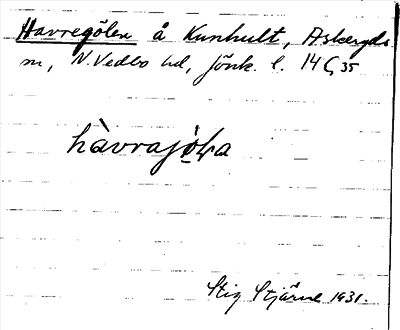 Havregölen å Kunhult, Askeryds
sn, N. Vedbo hd, Jönk. l. 14 C 35
hàvrajö̀ɫa
Stig Stjärne 1931.